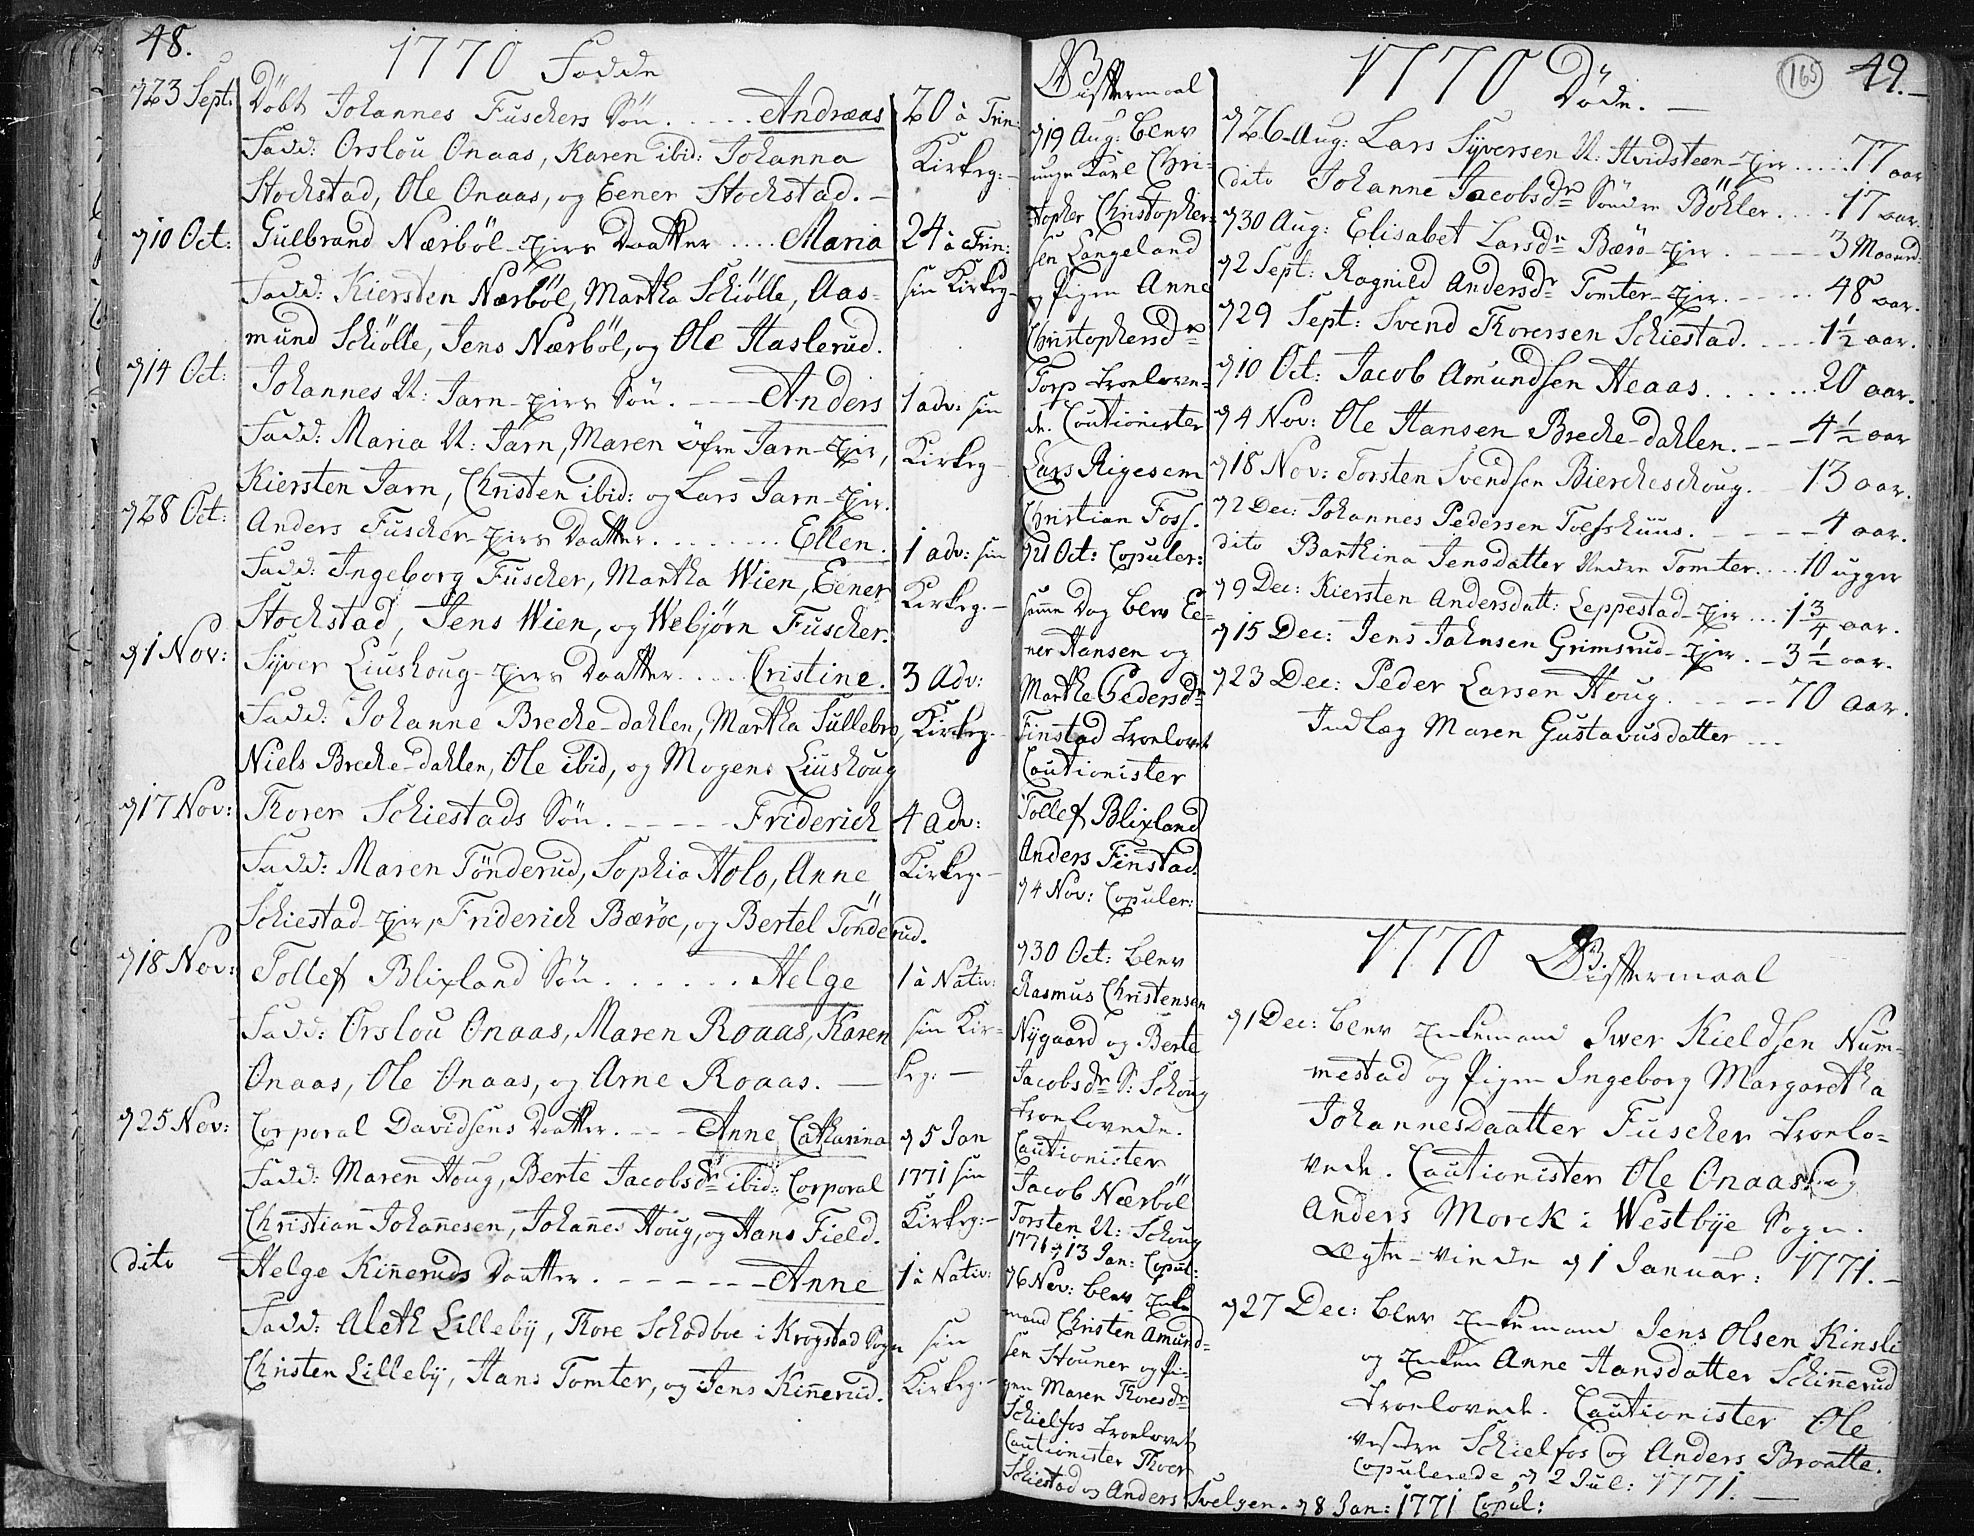 48.
1770 Fødde
d 23 Sept:
Döbt Johannes Fuschers Sön. . . . . . Andreas
20 à Trin:
Fadd: Orslou Onaas, Karen ibid: Johanna
Kirkeg: –
Stockstad, Ole Onaas, og Eener Stockstad. –
d 10 Oct:
Gulbrand Nærböl-ejers Daatter . . . . Maria
24 à Trin:
Fadd: Kiersten Nærböl, Martha Schiölle, Aas-
sin Kirkeg –
mund Schiölle, Jens Nærböl, og Ole Haslerud.
d 14 Oct:
Johannes N: Jarn-ejers Sön. – – – Anders
1 adv: sin
Fadd: Maria N: Jarn, Maren öfre Jarn-ejer,
Kirkeg –
Kiersten Jarn, Christen ibid: og Lars Jarn-ejer.
d 28 Oct:
Anders Fuscher-ejers Daatter. . . . . . . . Ellen.
1 adv: sin
Fadd: Ingeborg Fuscher, Martha Wien, Eener
Kirkeg. –
Stockstad, Jens Wien, og Webjörn Fuscher.
d 1 Nov:
Syver Liushoug-ejers Daatter. . . . . Cristine.
3 Adv:
Fadd: Johanne Breche-dahlen, Martha Sullebro,
Kirkeg. –
Niels Breche-dahlen, Ole ibid, og Mogens Liushoug
d 17 Nov:
Thorer Schiestads Sön. – – – – – Friderich
4 Adv:
Fadd: Maren Tönderud, Sophia Holo, Anne
Kirkeg. –
Schiestad-ejer, Friderich Bæröe, og Bertel Tönderud.
d 18 Nov:
Tollef Blixland Sön . . . . . . . Helge
1 à Nativ:
Fadd: Orslou Onaas, Maren Roaas, Karen
sin Kir-
Onaas, Ole Onaas, og Arne Roaas. –
keg: –
d 25 Nov:
Corporal Davidsens Daatter. – – – Anne Catharina
d 5 Jan
Fadd: Maren Houg, Berte Jacobsdr ibid: Corporal
1771 sin
Christian Johannesen, Johannes Houg, og Hans Field.
Kirkeg: –
dito
Helge Kinneruds Daatter. – – – – – – Anne
1 à Nativ:
Fadd: Aleth Lilleby, Thore Schodboe i Krogstad Sogn
sin
Christen Lilleby, Hans Tomter, og Jens Kinnerud.
Kirkeg. –
Bistermaal
d 19 Aug: blev
unge Karl Chri-
stopher Christopher-
sen Langeland
og Pigen Anne
Christophersdr
Torp troelove-
de. Cautionister
Lars Rigesem
Christian Foss.
d 21 Oct: Copuler:
samme Dag blev Ee-
ner Hansen og
Marthe Pedersdr
Finstad troelovet
Cautionister
Tollef Blixland
Anders Finstad.
d 4 Nov: Copuler:
d 30 Oct: blev
Rasmus Christensen
Nygaard og Berte
Jacobsdr S: Schoug
troelovede.
Cautionister
Jacob Nærböl
Torsten N: Schoug
1771 d 13 Jan: Copul:
d 6 Nov: blev Enke
mand Christen Amund-
sen Stouner og Pi-
gen Maren Thoresdr
Schielfos troelovet
Cautionister Thoer
Schiestad og Anders Svelgen. d 8 Jan: 1771 Copul:
1770 Döde. –
165
49. –
d 26 Aug: Lars Syversen N: Hvidsteen-ejer . . . . . 77 aar
dito Johanne Jacobsdr Söndre Böhler. . . . 17 aar.
d 30 Aug: Elisabet Larsdr Bærö-ejer. – – – – 3 Maaned
d 2 Sept: Ragnild Andersdr Tomter-ejer. – – . . . . 48 aar.
d 29 Sept: Svend Thorersen Schiestad. . – – – 1 1/2 aar.
d 10 Oct: Jacob Amundsen Heaas. . . . . . . . 20 aar.
d 4 Nov: Ole Hansen Breche-dahlen. – – – 4 1/2 aar
d 18 Nov: Torsten Svendsen Biercheschoug. – 13 aar.
d 2 Dec: Johannes Pedersen Toesshuus. – – – – 4 aar.
dito Barthina Jensdatter Nedre Tomter. . . . 10 ugger
d 9 Dec: Kiersten Andersdatt: Leppestad-ejer . . . 1 3/4 aar.
d 15 Dec: Jens Jahnsen Grimsrud-ejer. – 3 1/2 aar.
d 23 Dec: Peder Larsen Houg. – – – – 70 aar.
Indlæg Maren Gustavusdatter ...
1770 Bistermaal
d 1 Dec: blev Enkemand Iwer Kieldsen Num-
mestad og Pigen Ingeborg Margaretha
Johannesdaatter Fuscher troelo-
vede. Cautionister Ole Onaas og
Anders Morck i Westbye Sogn.
Ægte-viede d 1 Januar: 1771. –
d 27 Dec: blev Enkemand Jens Olsen Kinsli
og Enken Anne Hansdatter Schinnerud
troelovede. Cautionister Ole
vestre Schielfos og Anders Broatte.
Copulerede d 2 Jul: 1771. –